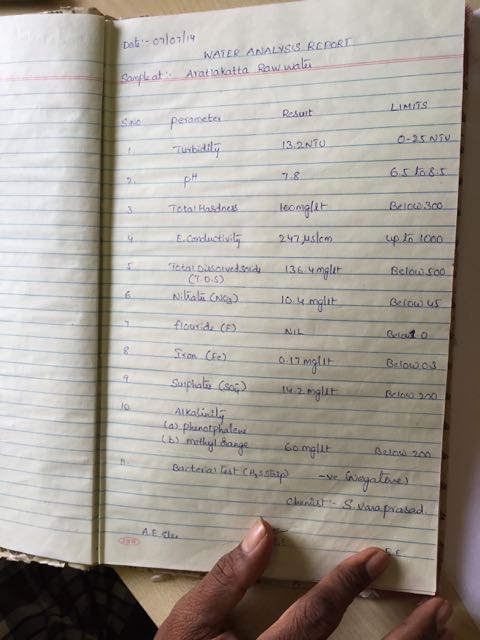 Date:- 07/07/14
WATER ANALYSIS REPORT
Sample at:- Aratlakatta Raw water
S.NO perameter Result LIMITS
1 Turbidity 13.2 NTU 0-25 NTU
2. pH 7.8 6.5 to 8.5
3 Total Hardness 100 mg/lt Below 300
4 E. Conductivity 247 µs/cm up to 1000
5 Total Dissolved solids 136.4 mg/lt Below 500
(T.D.S)
6 Nitrate (NO3) 10.4 mg/lt Below 45
7 flouride (F) NIL Below 1.0
8 Iron (Fe) 0.17 mg/lt Below 0.3
9 Sulphates (SO4) 14.2 mg/lt Below 200
10. Alkalinity
(a) phenolphalene
(b) methyl Orange 60 mg/lt Below 200
11. Bacterial test (H2S strip) -ve (negative)
Chemist:- S. Varaprasad
A.E.
E.E